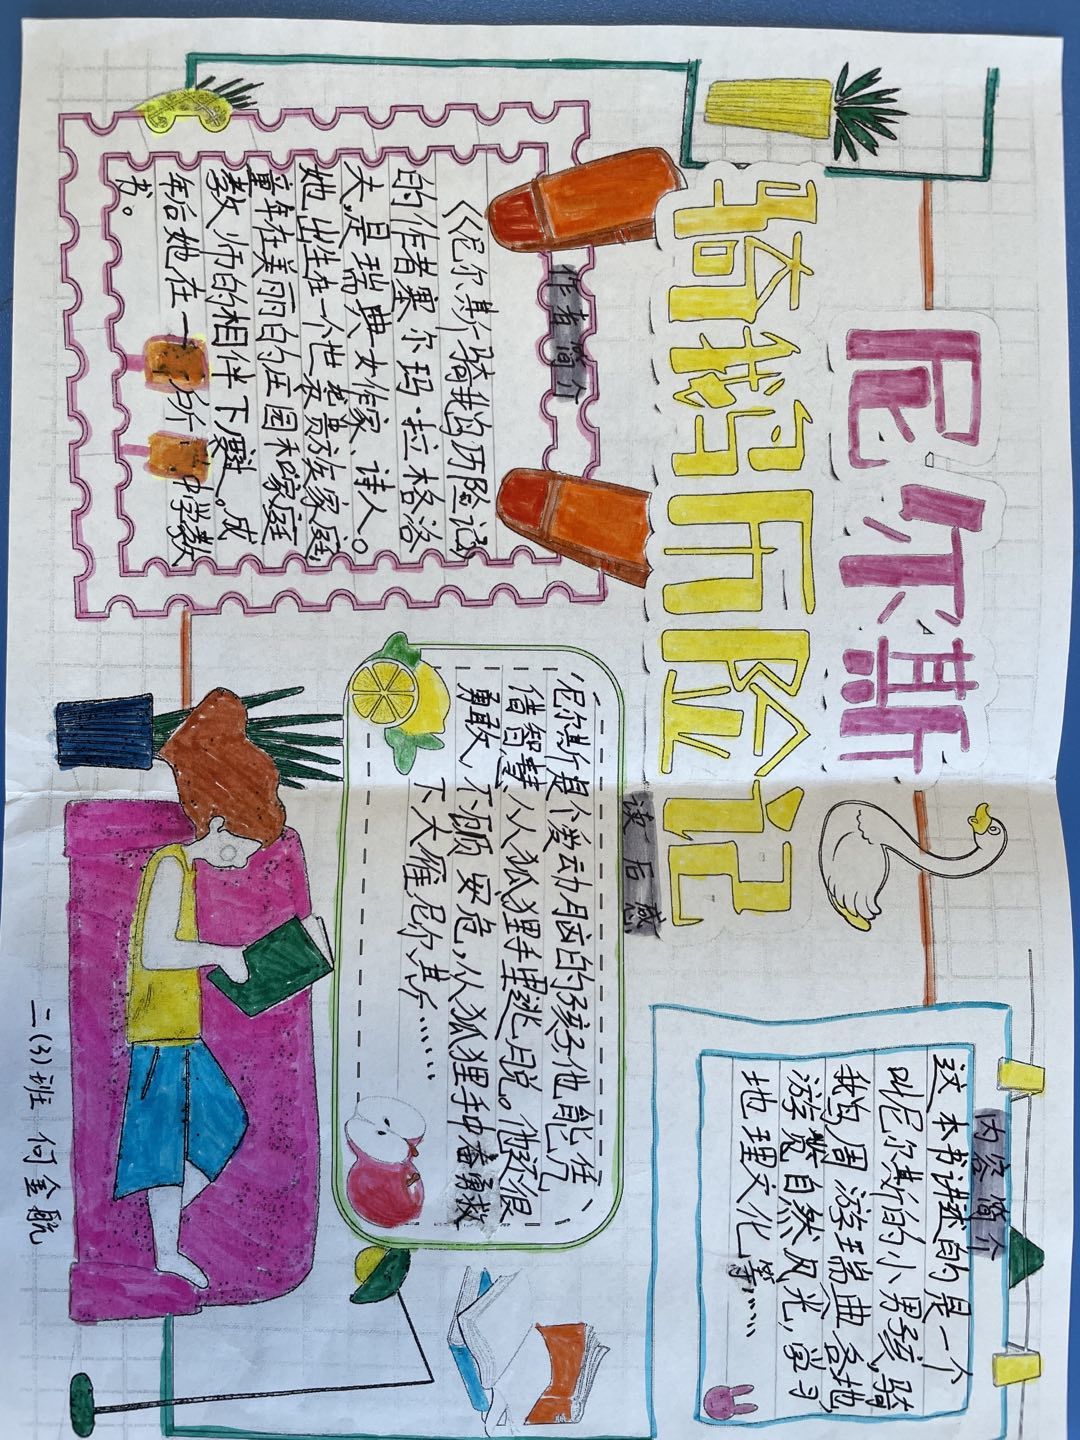 尼尔斯
骑鹅历险记
作者简介
《尼尔斯骑鹅历险记》
的作者塞尔玛·拉格洛
夫,是瑞典女作家、诗人。
她出生在一个世袭贵族家庭,
童年在美丽的庄园和家庭
教师的相伴下度过。成
年后她在一所中学教
书。
内容简介
这本书讲述的是一个
叫尼尔斯的小男孩,骑
鹅周游瑞典各地,
游览自然风光,学习
地理文化等……
读后感
尼尔斯是个爱动脑的孩子他能凭
借智慧、从狐狸手里逃脱。他还很
勇敢、不顾安危,从狐狸手中奋勇救
下大雁尼尔斯……
二(3)班 何金航